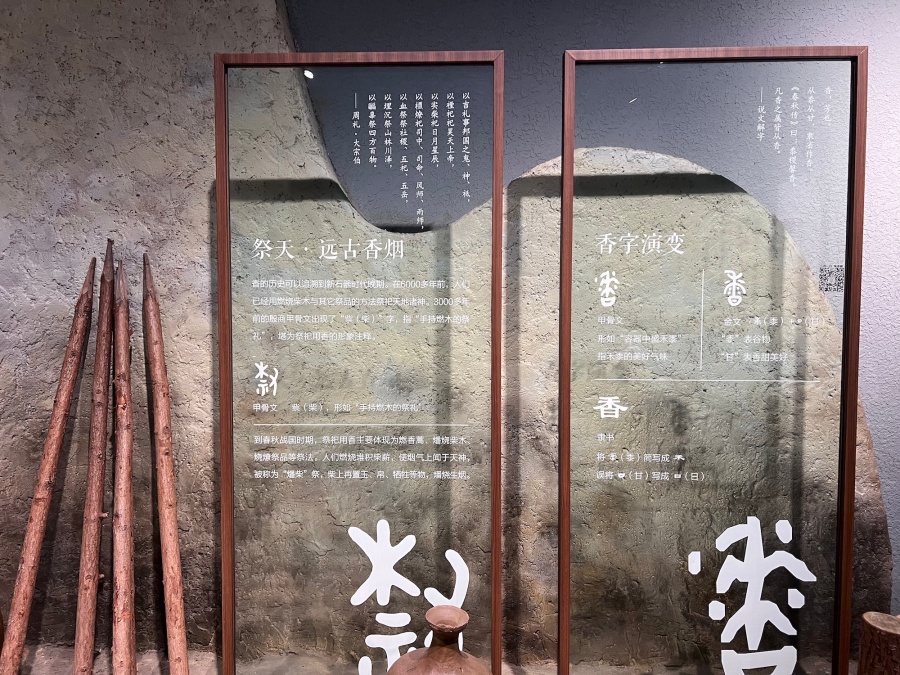 以吉礼事邦国之鬼、神、祗，
以禋祀祀昊天上帝，
以实柴祀日月星辰，
以槱燎祀司中、司命、风师、雨师，
以血祭祭社稷、五祀、五岳，
以埋沉祭山林川泽，
以疈辜祭四方百物。
——周礼·大宗伯
祭天·远古香烟
香的历史可以追溯到新石器时代晚期，在6000多年前，人们
已经用燃烧柴木与其它祭品的方法祭祀天地诸神。3000多年
前的殷商甲骨文出现了“祡（柴）”字，指“手持燃木的祭
礼”，堪为祭祀用香的形象注释。
甲骨文 祡（柴），形如“手持燃木的祭礼”
到春秋战国时期，祭祀用香主要体现为燃香蒿、燔烧柴木、
烧燎祭品等祭法，人们燃烧堆积柴薪，使烟气上闻于天神。
被称为“燔柴”祭，柴上再置玉、帛、牺牲等物，燔烧生烟。
香，芳也。
从黍从甘，隶省作香。
《春秋传》曰：黍稷馨香。
凡香之属皆从香。
——说文解字
香字演变
甲骨文
形如“容器中盛禾黍”
指禾黍的美好气味
金文
“黍”表谷物
“甘”表香甜美好
香
隶书
将（黍）简写成
误将（甘）写成（日）